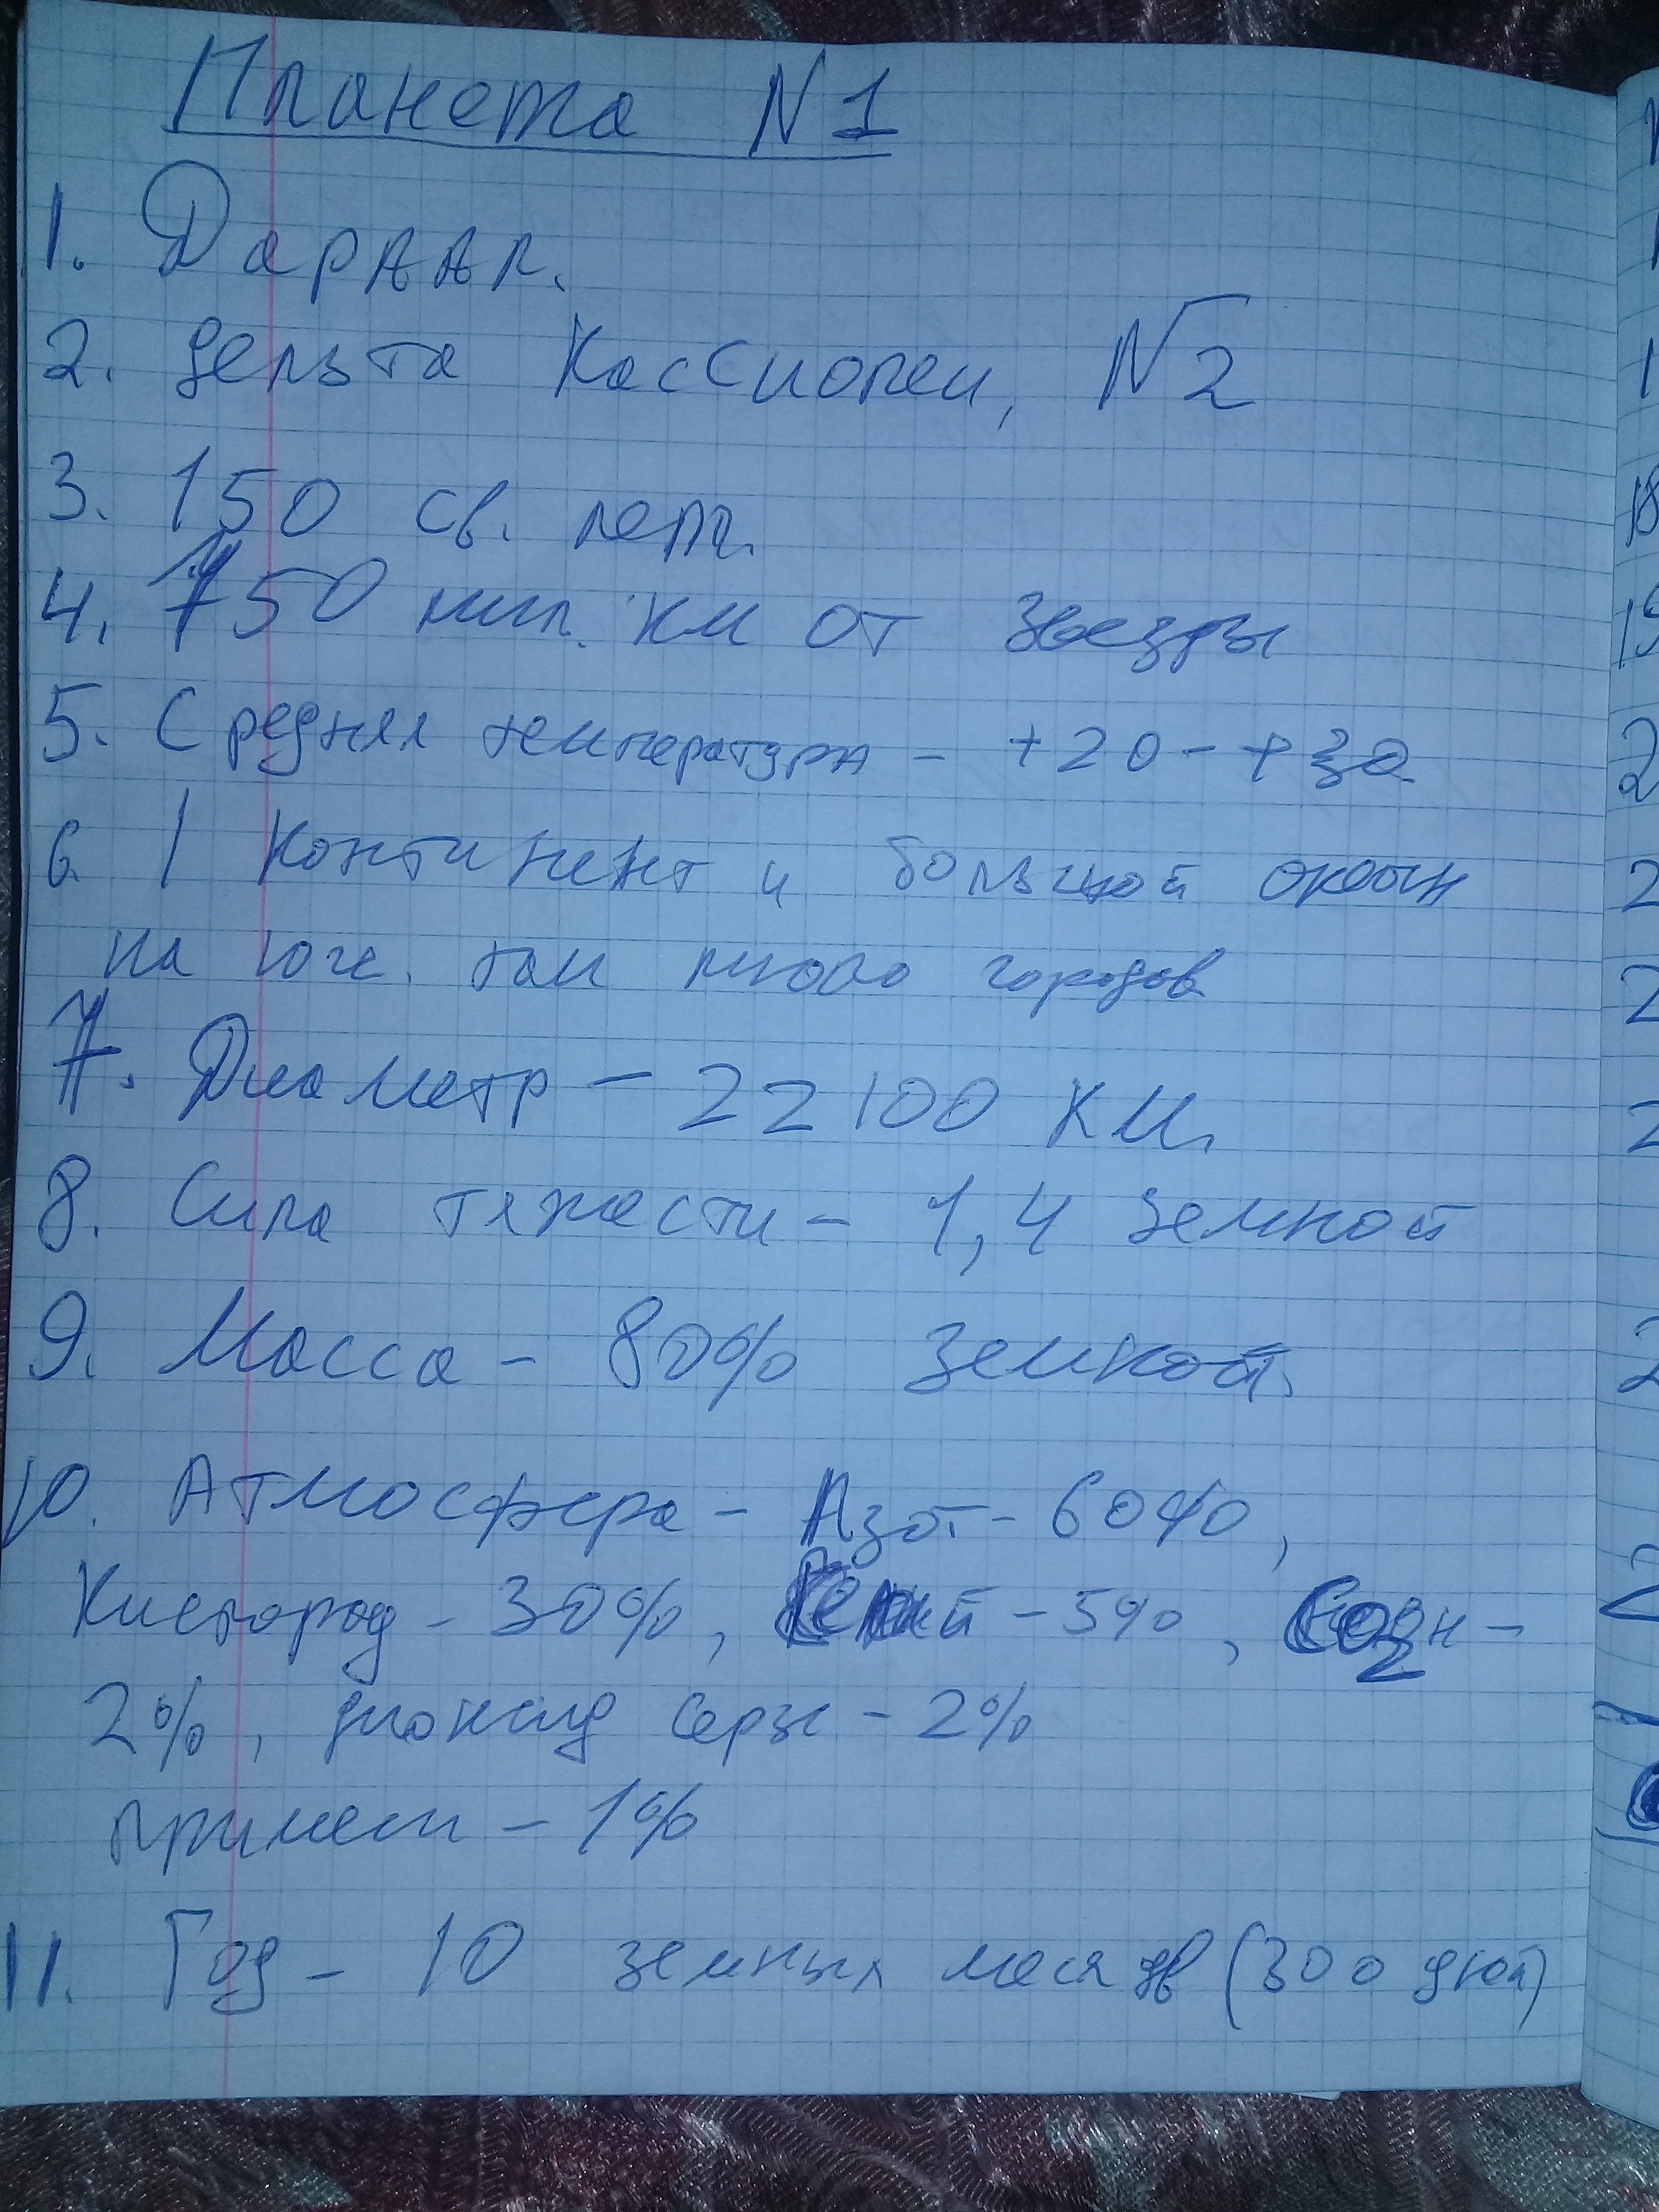 Планета N1
1. Дарвал.
2. дельта Кассиопеи, N2
3. 150 св. лет.
4. 750 мил. км от звезды
5. Средняя температура – +20 – +30
6. 1 континент и большой океан
на юге. там много городов
7. Диаметр – 22100 км.
8. Сила тяжести – 1,4 земной
9. Масса – 80% земной.
10. Атмосфера – Азот – 60%,
Кислород – 30%, – 5%,
2%, диоксид серы – 2%
примеси – 1%
11. Год – 10 земных месяцев (300 дней)